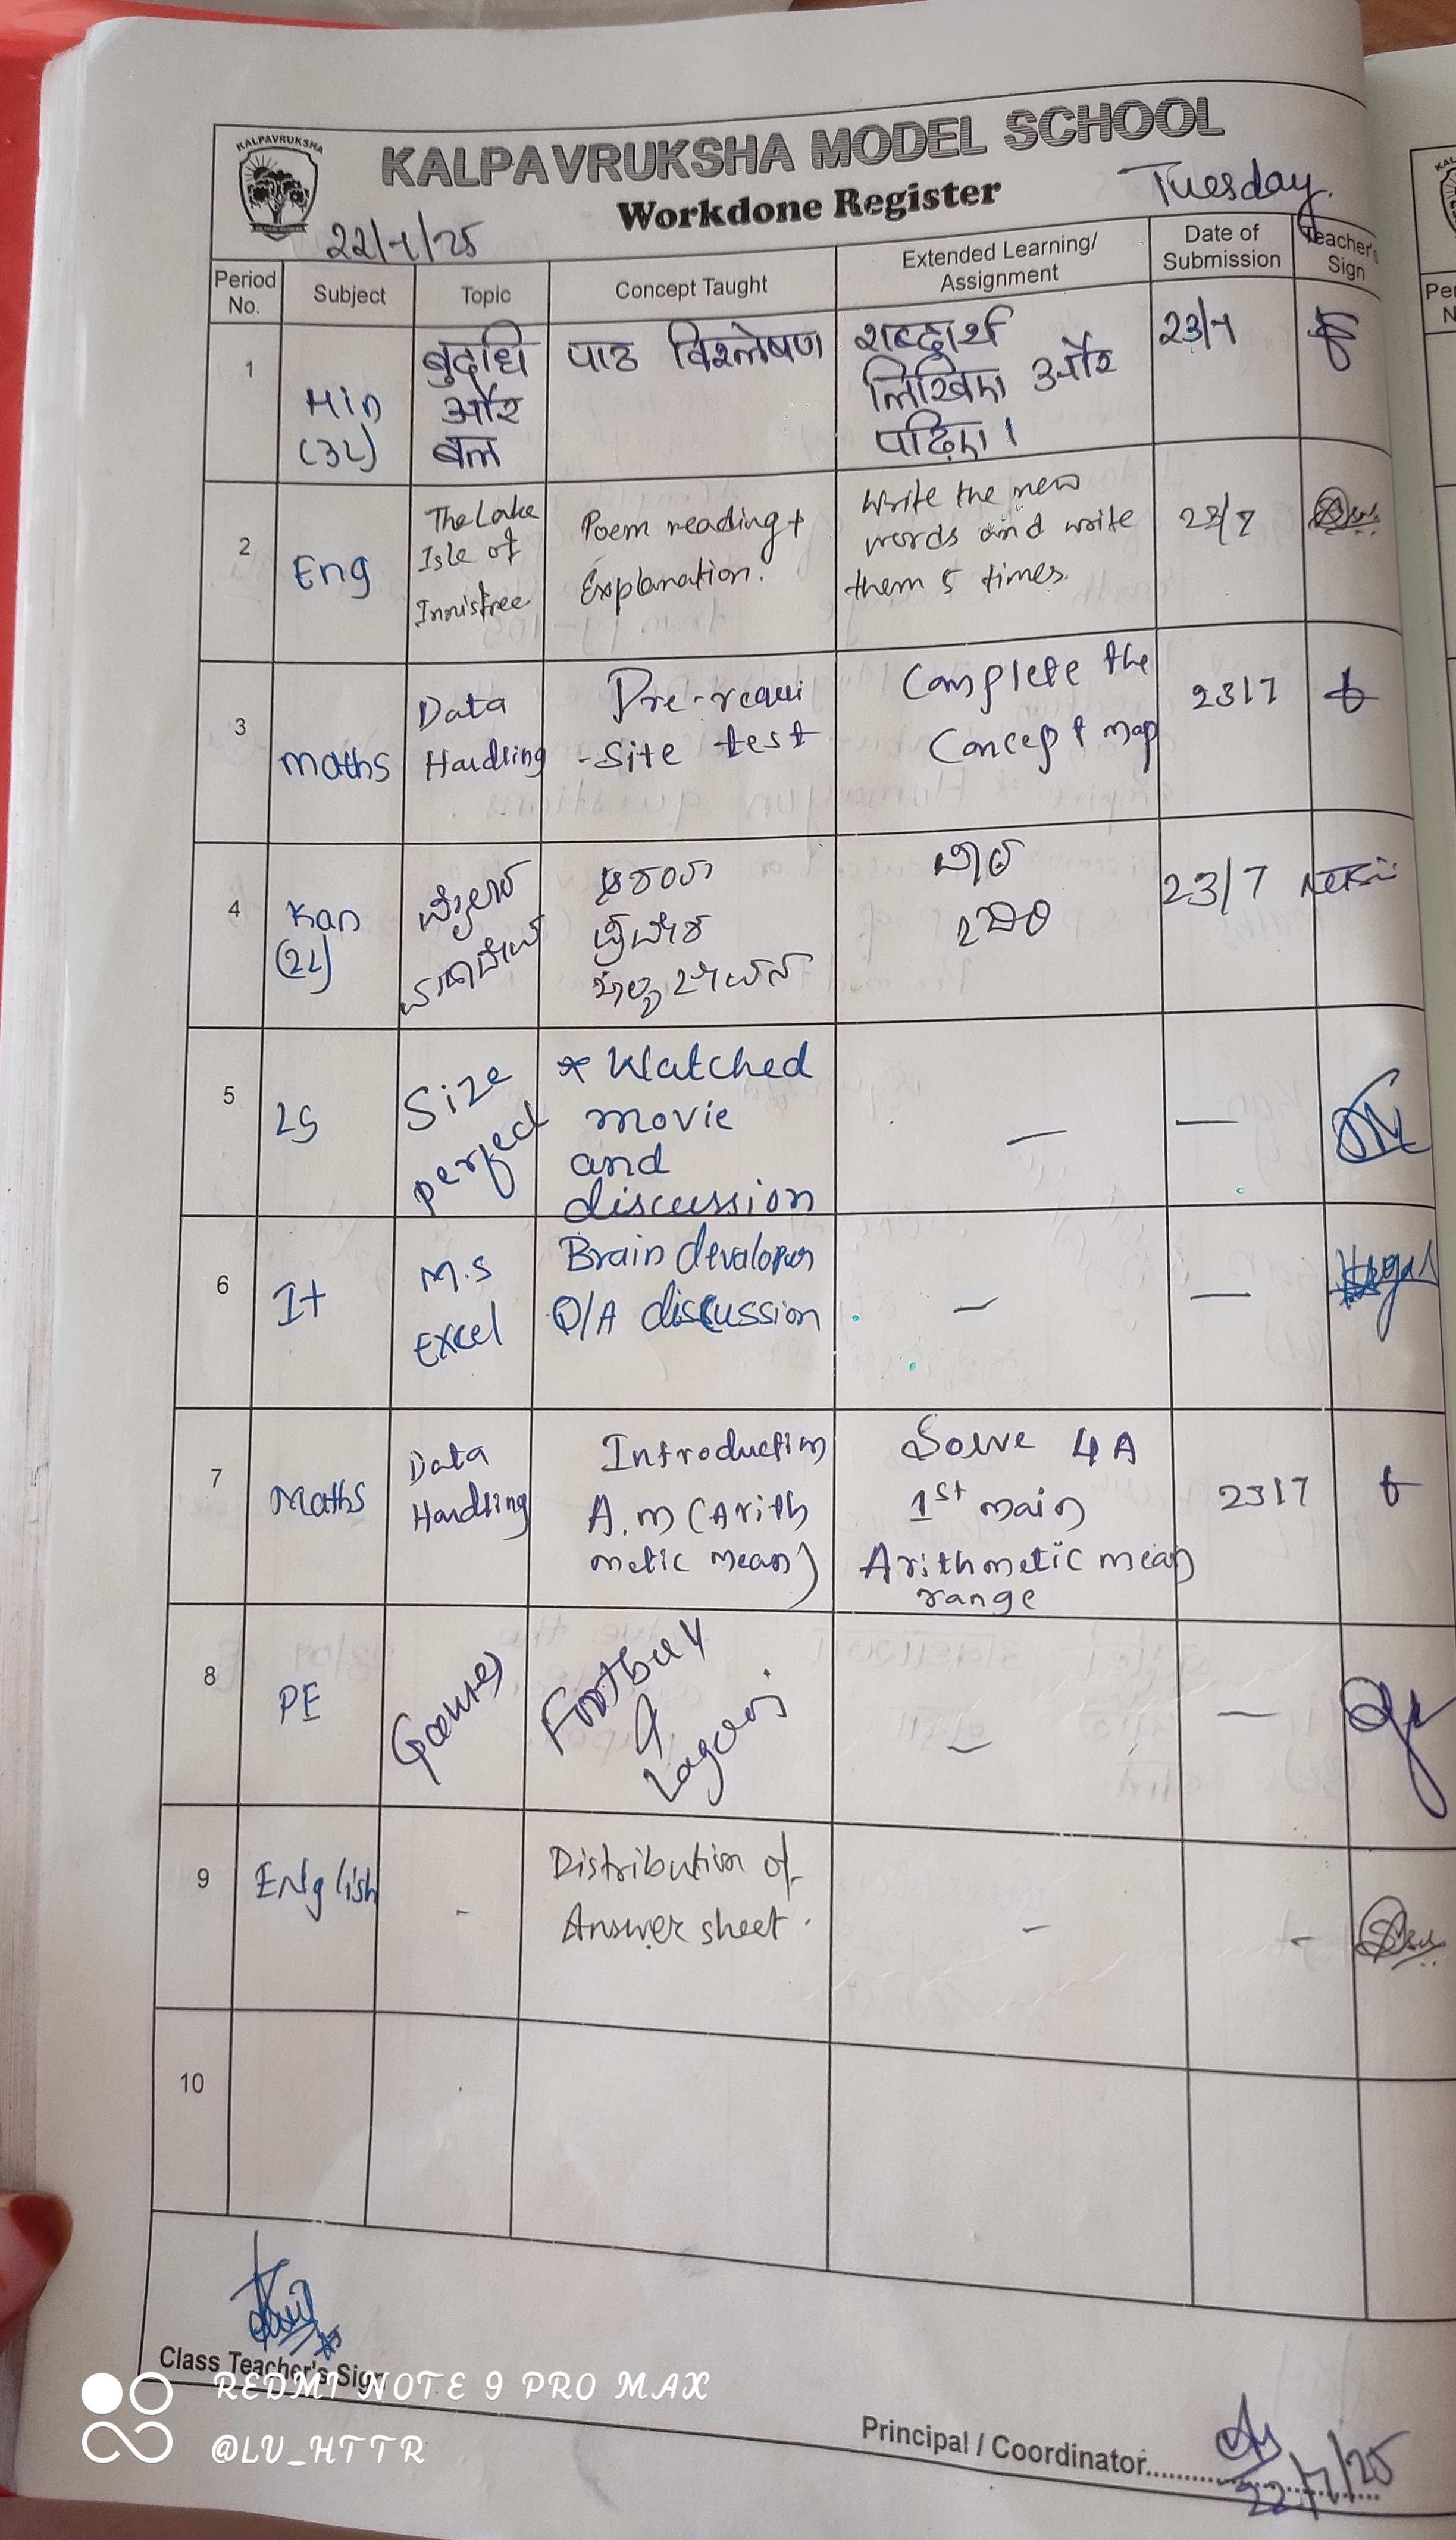 KALPAVRUKSHA
KALPAVRUKSHA MODEL SCHOOL
Workdone Register
Tuesday.
22/7/25
Period No.
Subject
Topic
Concept Taught
Extended Learning/ Assignment
Date of Submission
Teacher's Sign
1
Hin
(3L)
बुद्धि
और
बल
पाठ विश्लेषण
शब्दार्थ
लिखिए और
पढ़िए।
23/7
2
Eng
The Lake
Isle of
Innisfree
Poem reading +
Explanation.
Write the new
words and write
them 5 times.
23/7
3
Maths
Data
Handling
Pre-requi
-Site test
Complete the
Concept map
23/7
4
Kan
(2L)
23/7
5
LS
Size
perfect
* Watched
movie
and
discussion
—
—
6
It
M.S
Excel
Brain
Q/A discussion
—
—
7
Maths
Data
Handling
Introduction
A.m (Arith
metic mean)
Solve 4A
1st main
Arithmetic mean
range
23/7
8
PE
Games
Football
&
Lagori
—
—
9
English
-
Distribution of
Answer sheet.
-
-
10
Class Teacher's Sign
Principal / Coordinator
22/7/25
REDMI NOTE 9 PRO MAX
@LV_HTTR